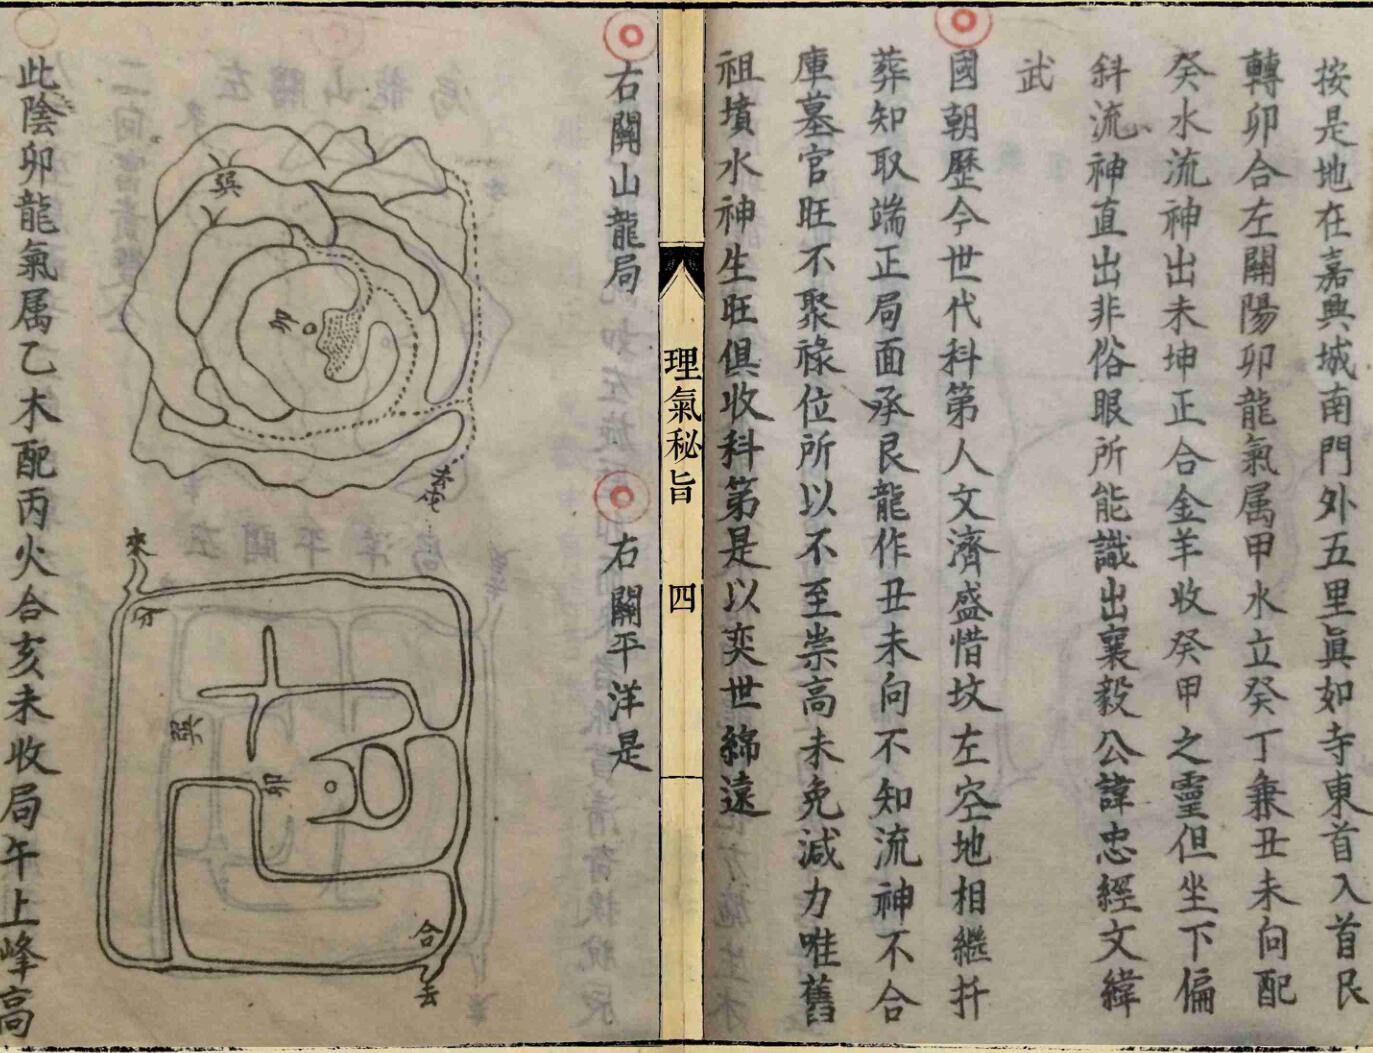 按是地在嘉興城南門外五里眞如寺東首入首艮
轉卯合左關陽卯龍氣属甲水立癸丁兼丑未向配
癸水流神出未坤正合金羊收癸甲之靈但坐下偏
斜流神直出非俗眼所能識出襄毅公諱忠經文緯
武
國朝歷今世代科第人文濟盛惜坟左空地相繼扦
葬知取端正局面承艮龍作丑未向不知流神不合
庫墓官旺不聚祿位所以不至崇高未免減力唯舊
祖墳水神生旺俱收科第是以奕世綿遠
理氣秘旨
四
右關山龍局
右關平洋是
巽
卯
來
分
巽
卯
合
去
此陰卯龍氣属乙木配丙火合亥未收局午上峰高